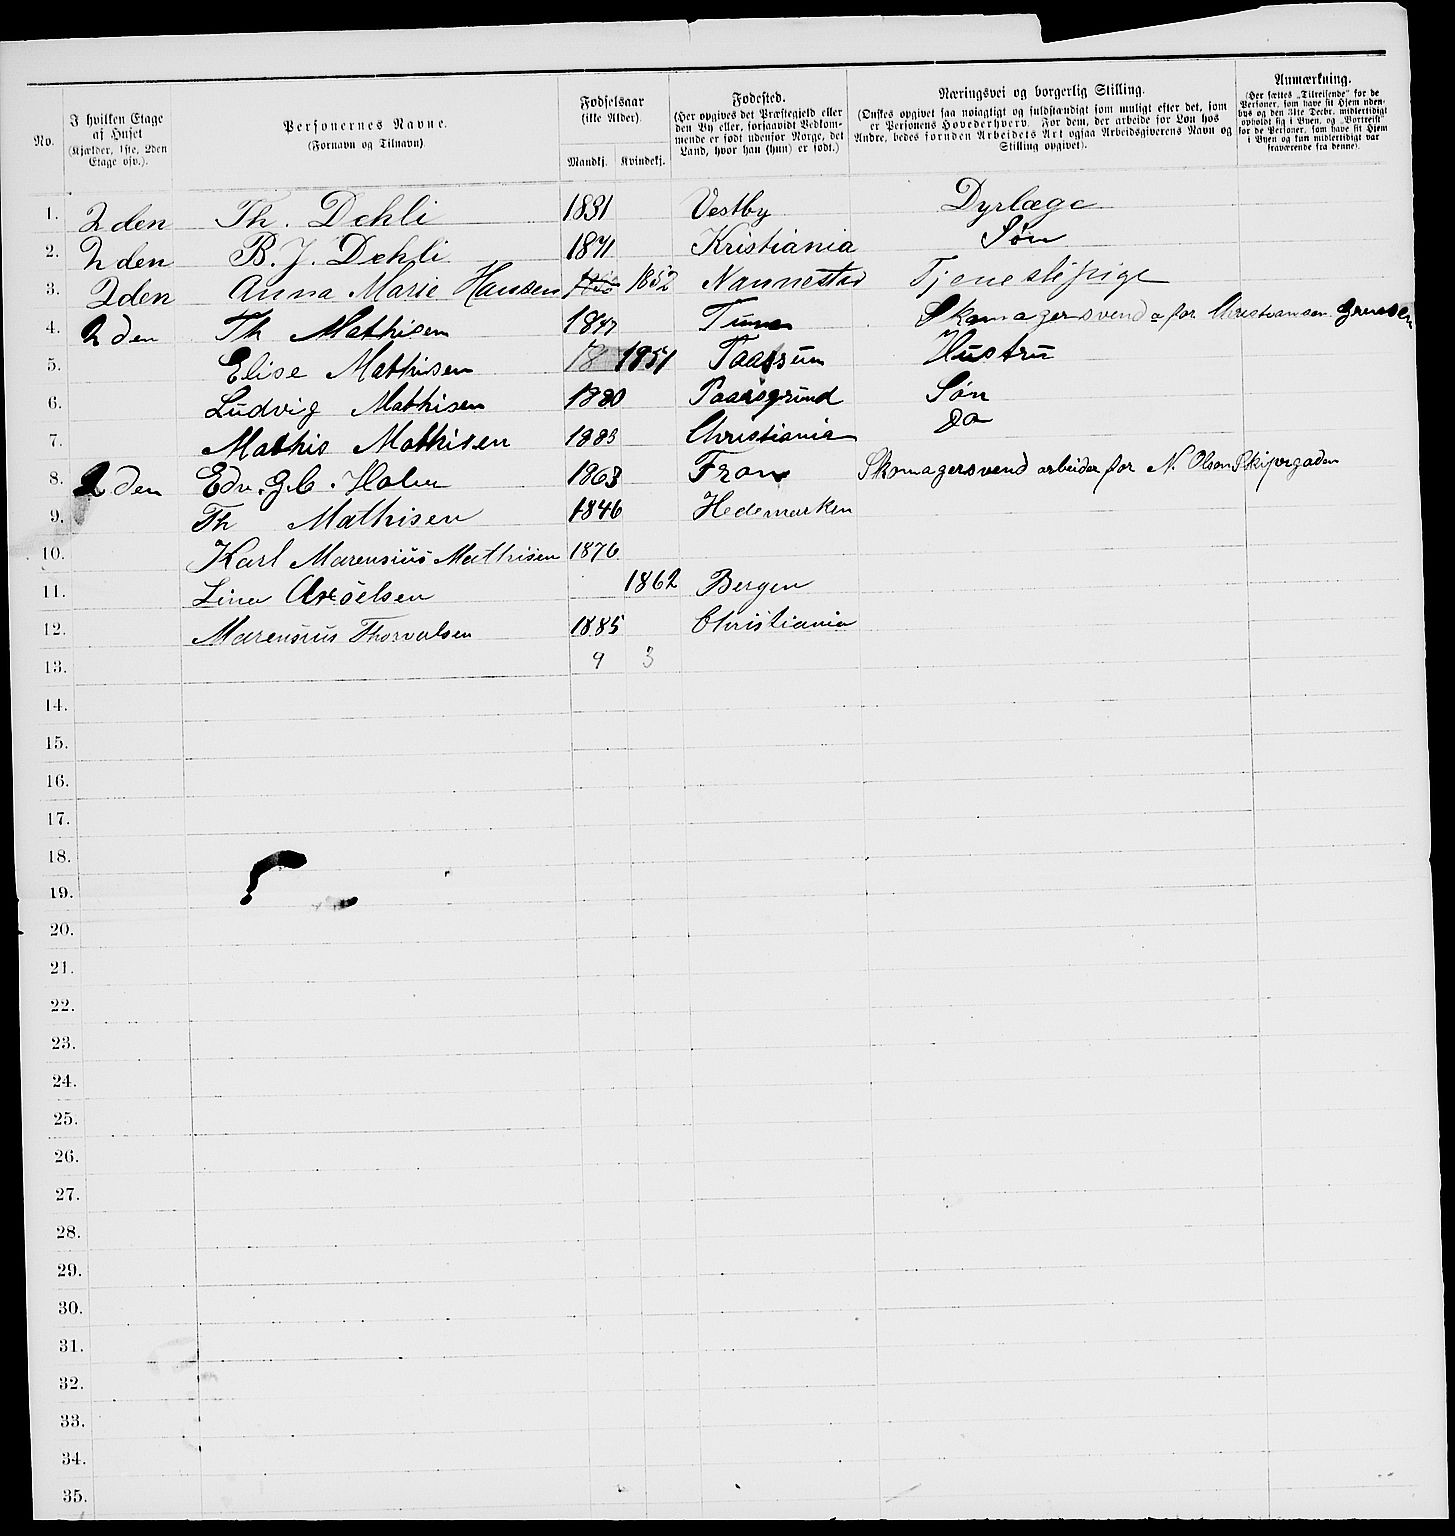 No.
I hvilken Etage af Huset (Kjælder, 1ste, 2den Etage osv.).
Personernes Navne. (Fornavn og Tilnavn)
Fødselsaar (ikke Alder). Mandkj. Kvindekj.
Fødested. (Her opgives det Præstegjeld eller den By eller, forsaavidt Vedkommende er født udenfor Norge, det Land, hvor han (hun) er født.)
Næringsvei og borgerlig Stilling. (Ønskes opgivet saa nøiagtigt og fuldstændigt som muligt efter det, som er Personens Hovederhverv. For dem, der arbeide for Løn hos Andre, bedes foruden Arbeidets Art ogsaa Arbeidsgiverens Navn og Stilling opgivet).
Anmærkning. (Her sættes „Tilreisende" for de Personer, som have sit Hjem udenbys og den 31te Decbr. midlertidigt opholdt sig i Byen, og „Bortreist" for de Personer, som have sit Hjem i Byen og kun midlertidigt var fraværende fra denne).
1. 2den Th. Dehli 1831 Vestby Dyrlæge
2. 2den B. J. Dehli 1871 Kristiania Søn
3. 2den Anna Marie Hansen 1852 Nannestad Tjenestepige
4. 2den Th Mathisen 1847 Tune Skomagersvend a for Christiansen Grensen
5. Elise Mathisen 18 1851 Hustru
6. Ludvig Mathisen 1880 Søn
7. Mathis Mathisen 1883 Christiania Do
8. 2den Edv. 1863 Fron Skomagersvend arbeider for N. Olsen Skipergaden
9. Th Mathisen 1846 Hedemarken
10. Karl Marensius Mathisen 1876
11. Lina Axselsen 1862 Bergen
12. Marensius Thorvalsen 1885 Christiania
13. 9 3
14.
15.
16.
17.
18.
19.
20.
21.
22.
23.
24.
25.
26.
27.
28.
29.
30.
31.
32.
33.
34.
35.